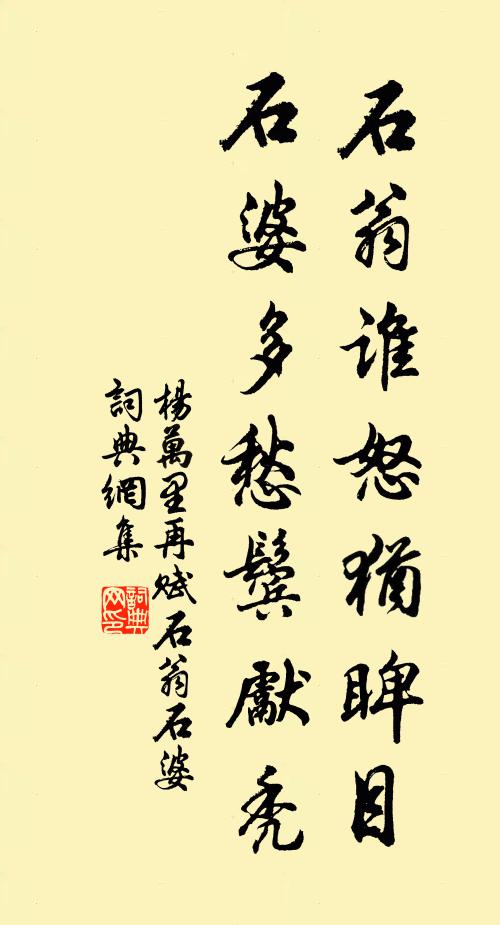 石翁誰怒猶睥目
石婆多愁鬢獻禿
楊萬里再賦石翁石婆
詞典網集
詞典网印